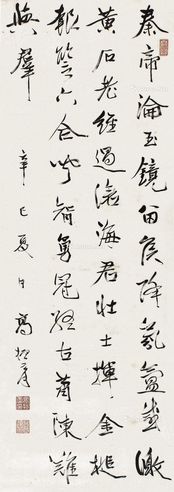 秦帝淪玉鏡留侯降氛氳感激
黃石老經過滄海君壯士揮金槌
報讐六合聞智勇冠終古蕭陳難
與群
辛巳夏日